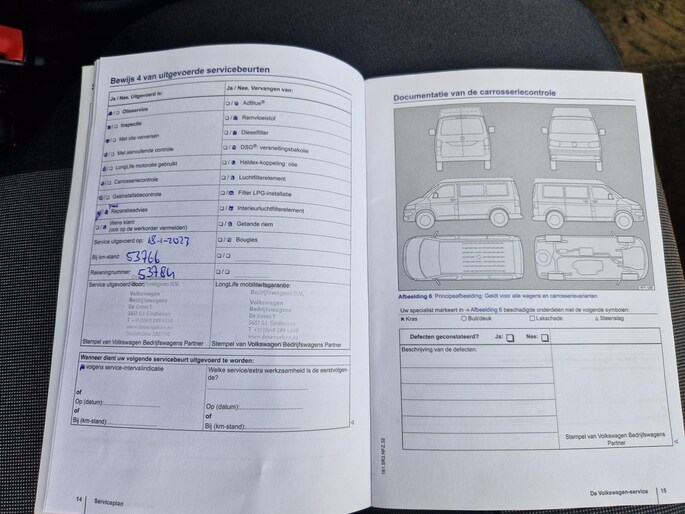 Bewijs 4 van uitgevoerde servicebeurten
Ja / Nee. Uitgevoerd is:
Ja / Nee. Vervangen van:
Olieservice
AdBlue®
Inspectie
Remvloeistof
Met olie verversen
Dieselfilter
Met aanvullende controle
DSG®-versnellingsbakolie
LongLife motorolie gebruikt
Haldex-koppeling: olie
Carrosseriecontrole
Luchtfilterelement
Gasinstallatiecontrole
Filter LPG-installatie
Reparatieadvies
Interieurluchtfilterelement
Wens klant
(ook op de werkorder vermelden)
Getande riem
Service uitgevoerd op: 18-1-2023
Bougies
Bij km-stand: 53766
Rekeningnummer: 53784
Service uitgevoerd door:
LongLife mobiliteitsgarantie:
Volkswagen
Bedrijfswagens
Stempel van Volkswagen Bedrijfswagens Partner
Stempel van Volkswagen Bedrijfswagens Partner
Wanneer dient uw volgende servicebeurt uitgevoerd te worden:
volgens service-intervalindicatie
Welke service/extra werkzaamheid is de eerstvolgen-
de?
of
Op (datum):
of
Bij (km-stand):
of
Op (datum):
of
Bij (km-stand):
14
Serviceplan
Documentatie van de carrosseriecontrole
Afbeelding 6 Principeafbeelding: Geldt voor alle wagens en carrosserievarianten
Uw specialist markeert in ⇒ Afbeelding 6 beschadigde onderdelen met de volgende symbolen:
✕ Kras
○ Buil/deuk
□ Lakschade
△ Steenslag
Defecten geconstateerd? Ja: Nee:
Beschrijving van de defecten:
Stempel van Volkswagen Bedrijfswagens
Partner
De Volkswagen-service
15